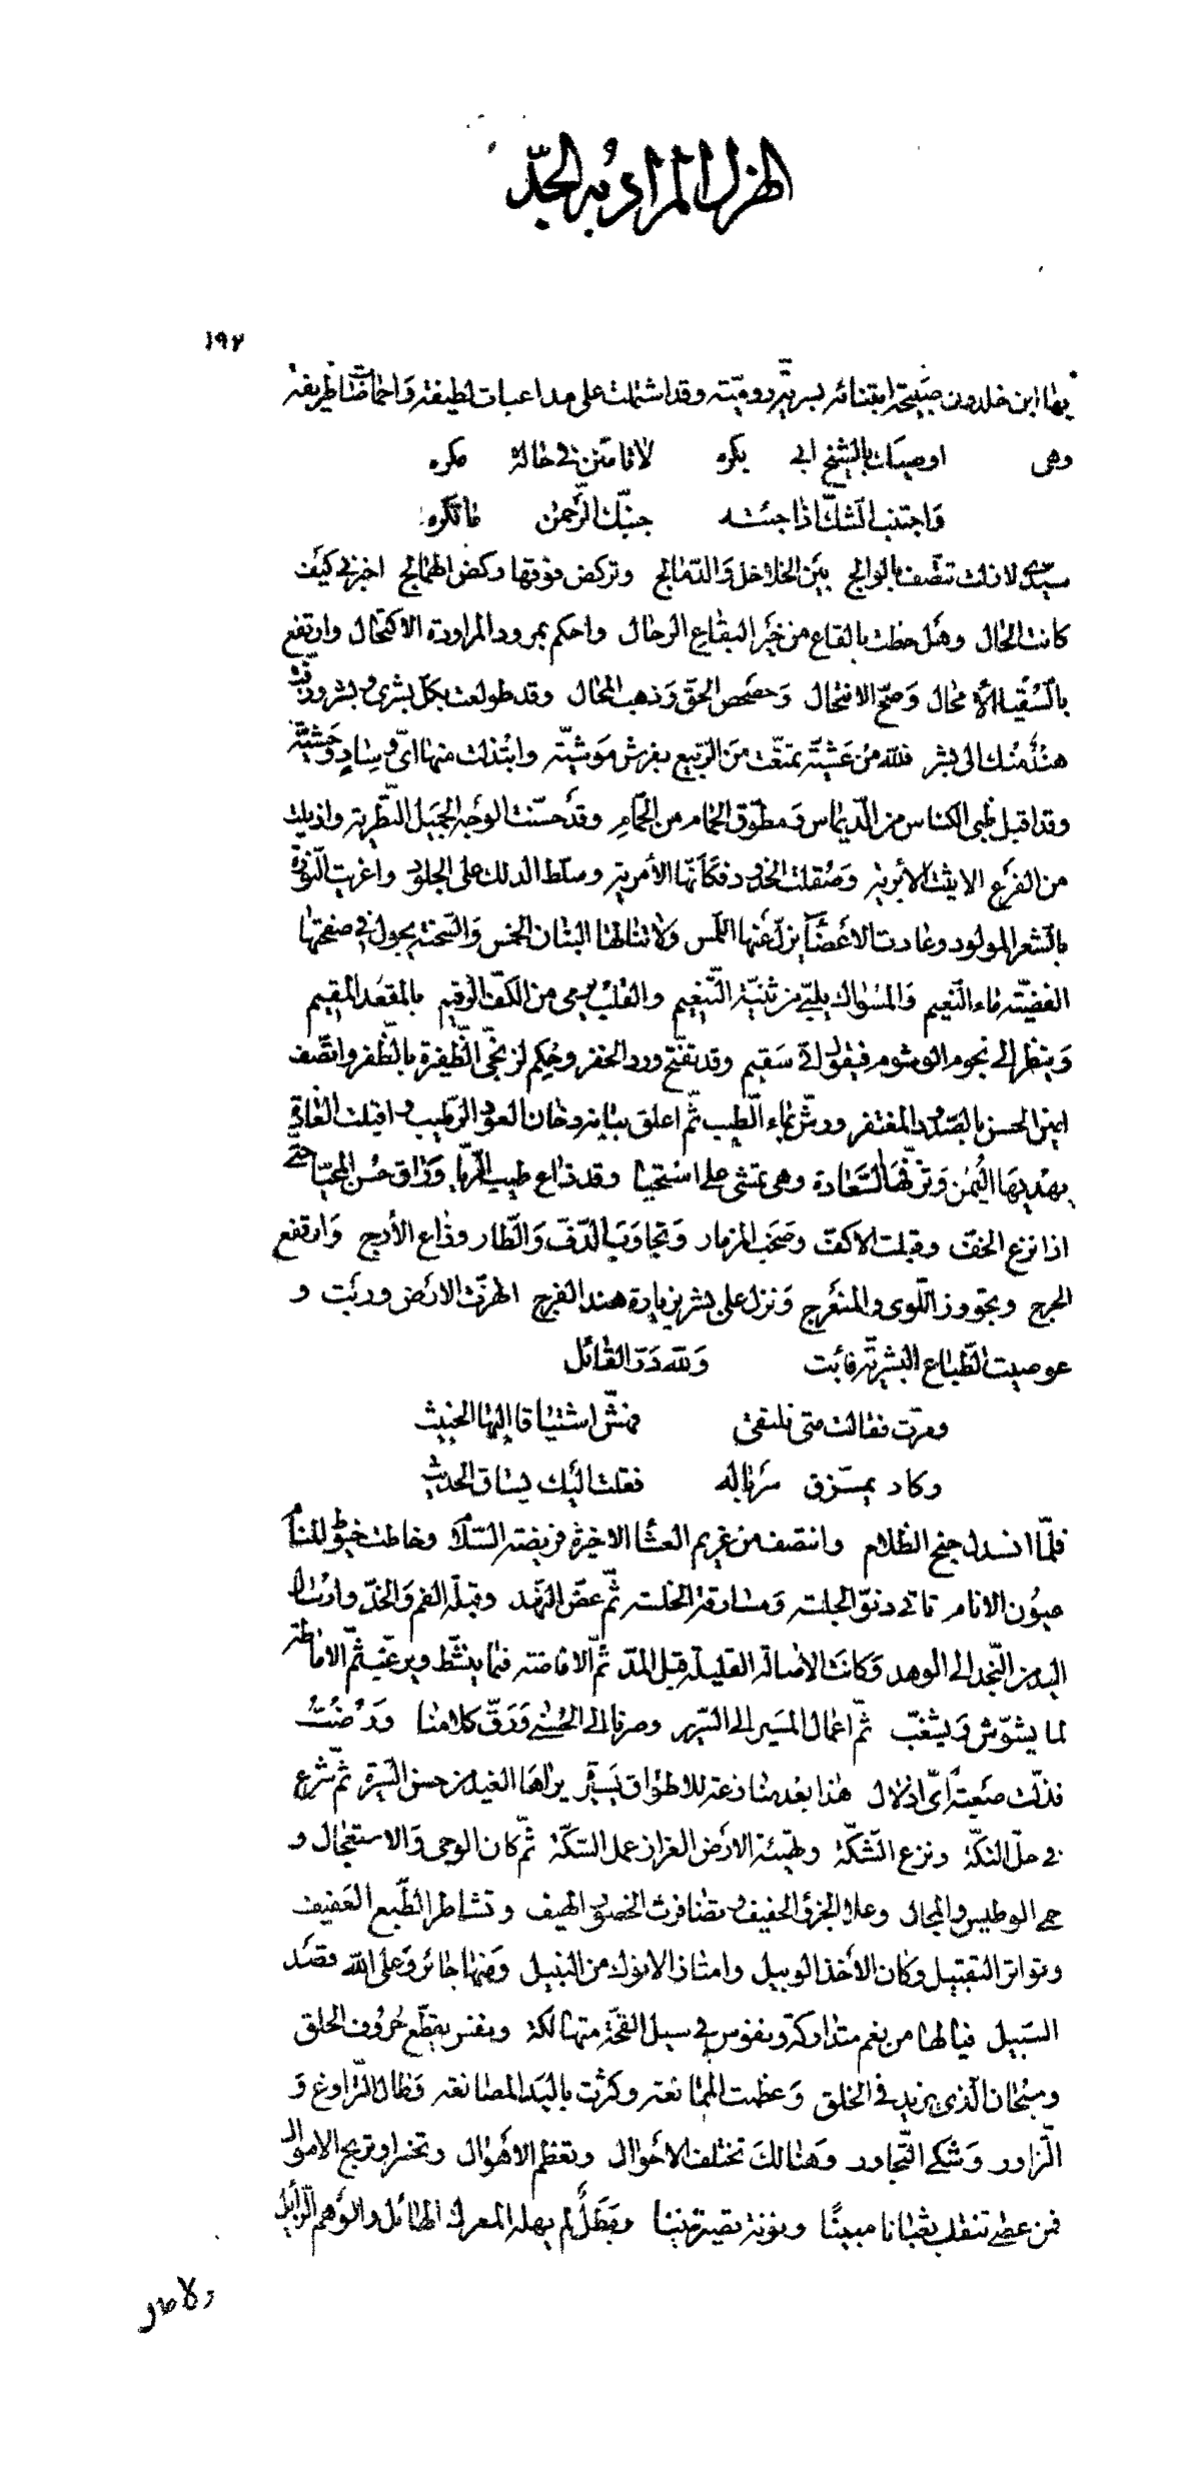 الهزل المراد به الجدّ
١٩٢
بها ابن خلدون صبيحة ابتنائه بسرية رومية وقد اشتملت على مداعبات لطيفة واحماضات ظريفة
وهى اوصيك بالشيخ ابى بكره لا تامنن فى حالة مكره
واجتنب الشك اذا جئته جنبك الرحمن ما تكره
سيدى لا زلت تتصف بالوالج بين الخلاخل والدمالج وتركض فوقها ركض الهمالج اخبرنى كيف
كانت الحال وهل حطت بالقاع من خير البقاع الرحال واحكم بمرود المراودة الاكتحال وارتفع
بالسقيا الامحال وصح الانتحال وحصحص الحق وذهب المحال وقد طولعت بكل بشرى وبشر وزفت
هند منك الى بشر فلله من عشية تمتعت من الربيع بفرش موشية وابتذلت منها اى وساد وحشية
وقد اقبل ظبى الكناس من الديماس ومطوق الحمام من الحمام وقد حسنت الوجه الجميل النظرية وازيلت
من الفرع الاثيث الابرية وصقلت الخدود فكانها الامرية وسلط الدلك على الجلود واغريت النورة
بالشعر المولود وعادت الاعضا يزل عنها اللمس ولا تنالها البنان الخمس والسحنة يجول فى صفحتها
الفضية ماء النعيم والمسواك يلبى من ثنية التنعيم والقلب يرمى من الكف الرقيم بالمقعد المقيم
وينظر الى نجوم الوشوم فيقول انى سقيم وقد تفتح ورد الخفر وحكم لزنجى الظفيرة بالظفر واتصف
امير الحسن بالصدود المغتفر ورش بماء الطيب ثم اعلق ببانه دخان العود الرطيب واقبلت الغادة
يهديها اليمن وتزفها السعادة وهى تمشى على استحيا وقد ذاع طيب الريا وراق حسن المحيا حتى
اذا نزع الخف وقبلت الاكف وصخب المزمار وتجاوب الدف والطار وذاع الارج وارتفع
الحرج وتجووز اللوى والمنعرج ونزل على بشر بزيارة هند الفرج اهتزت الارض وربت و
عوصيت الطباع البشرية فابت ولله در القائل
ومرت فقالت متى نلتقى فهش اشتياقا اليها الخبيث
وكاد يمزق سرباله فقلت اليك يساق الحديث
فلما انسدل جنح الظلام وانتصف من غريم العشا الاخيرة فريضة السلام وخاطت خيوط المنام
عيون الانام تاتى دنو الجلسة ومسارقة الخلسة ثم عض النهد وقبلة الفم والخد وارسال
اليد من النجد الى الوهد وكانت الامالة القليلة قبل المد ثم الافاضة فيما ينشط ويرغب ثم الاماطة
لما يشوش ويشغب ثم اعمال المسير الى السرير وصرنا الى الحسنى ورق كلامنا ورضت
فذلت صعبة اى اذلال هذا بعد منازعة للاطواق يسيرة يراها الغيد من حسن السيرة ثم شرع
فى حل التكة ونزع الشكة وتهيئة الارض العزاز عمل السكة ثم كان الوحى والاستعجال و
حمى الوطيس والمجال وعلا الجزء الخفيف وتضافرت الخصور الهيف وتشاطر الطبع العفيف
وتواتر التقبيل وكان الاخذ الوبيل وامتاز الانوك من النبيل ومنها جائر وعلى الله قصد
السبيل فيا لها من نعم متداركة ونفوس فى سبيل القحة متهالكة ونفس يقطع حروف الحلق
وسبحان الذى يزيد فى الخلق وعظمت الممانعة وكثرت باليد المصانعة وطال التراوغ و
التزاور وشكى التجاور وهنالك تختلف الاحوال وتعظم الاهوال وتخسر او تربح الاموال
فمن عصى تنقلب ثعبانا مبينا ونونة تصير تنينا وبطل لم يهله المعرك الهائل والوهم الزائل
ولا حال